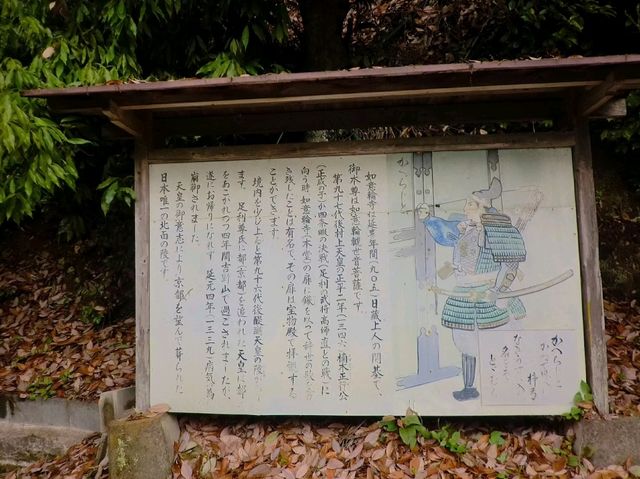 如意輪寺は延喜年間（九〇五）日蔵上人の開基で、
御本尊は如意輪観世音菩薩です。
第九十七代後村上天皇の正平二年（一三四六）楠木正行公
（正成の子）が四条畷の決戦（足利の武将高師直との戦）に
向う時如意輪寺（本堂）の扉に鏃を以って辞世の歌を書
き残したことは有名で、その扉は宝物殿で拝観する
ことができます。
境内を少し上ると第九十六代後醍醐天皇の陵が
ます。足利尊氏に都（京都）を追われた天皇は都
をあこがれつつ四年間吉野山で過ごされましたが、
遂にお帰りになれず、延元四年（一三三九）病気の為
崩御されました。
天皇の御意志により京都を望んで葬られた
日本唯一の北面の陵です。
かへらじと
かへらじと
かねて
梓弓
なき